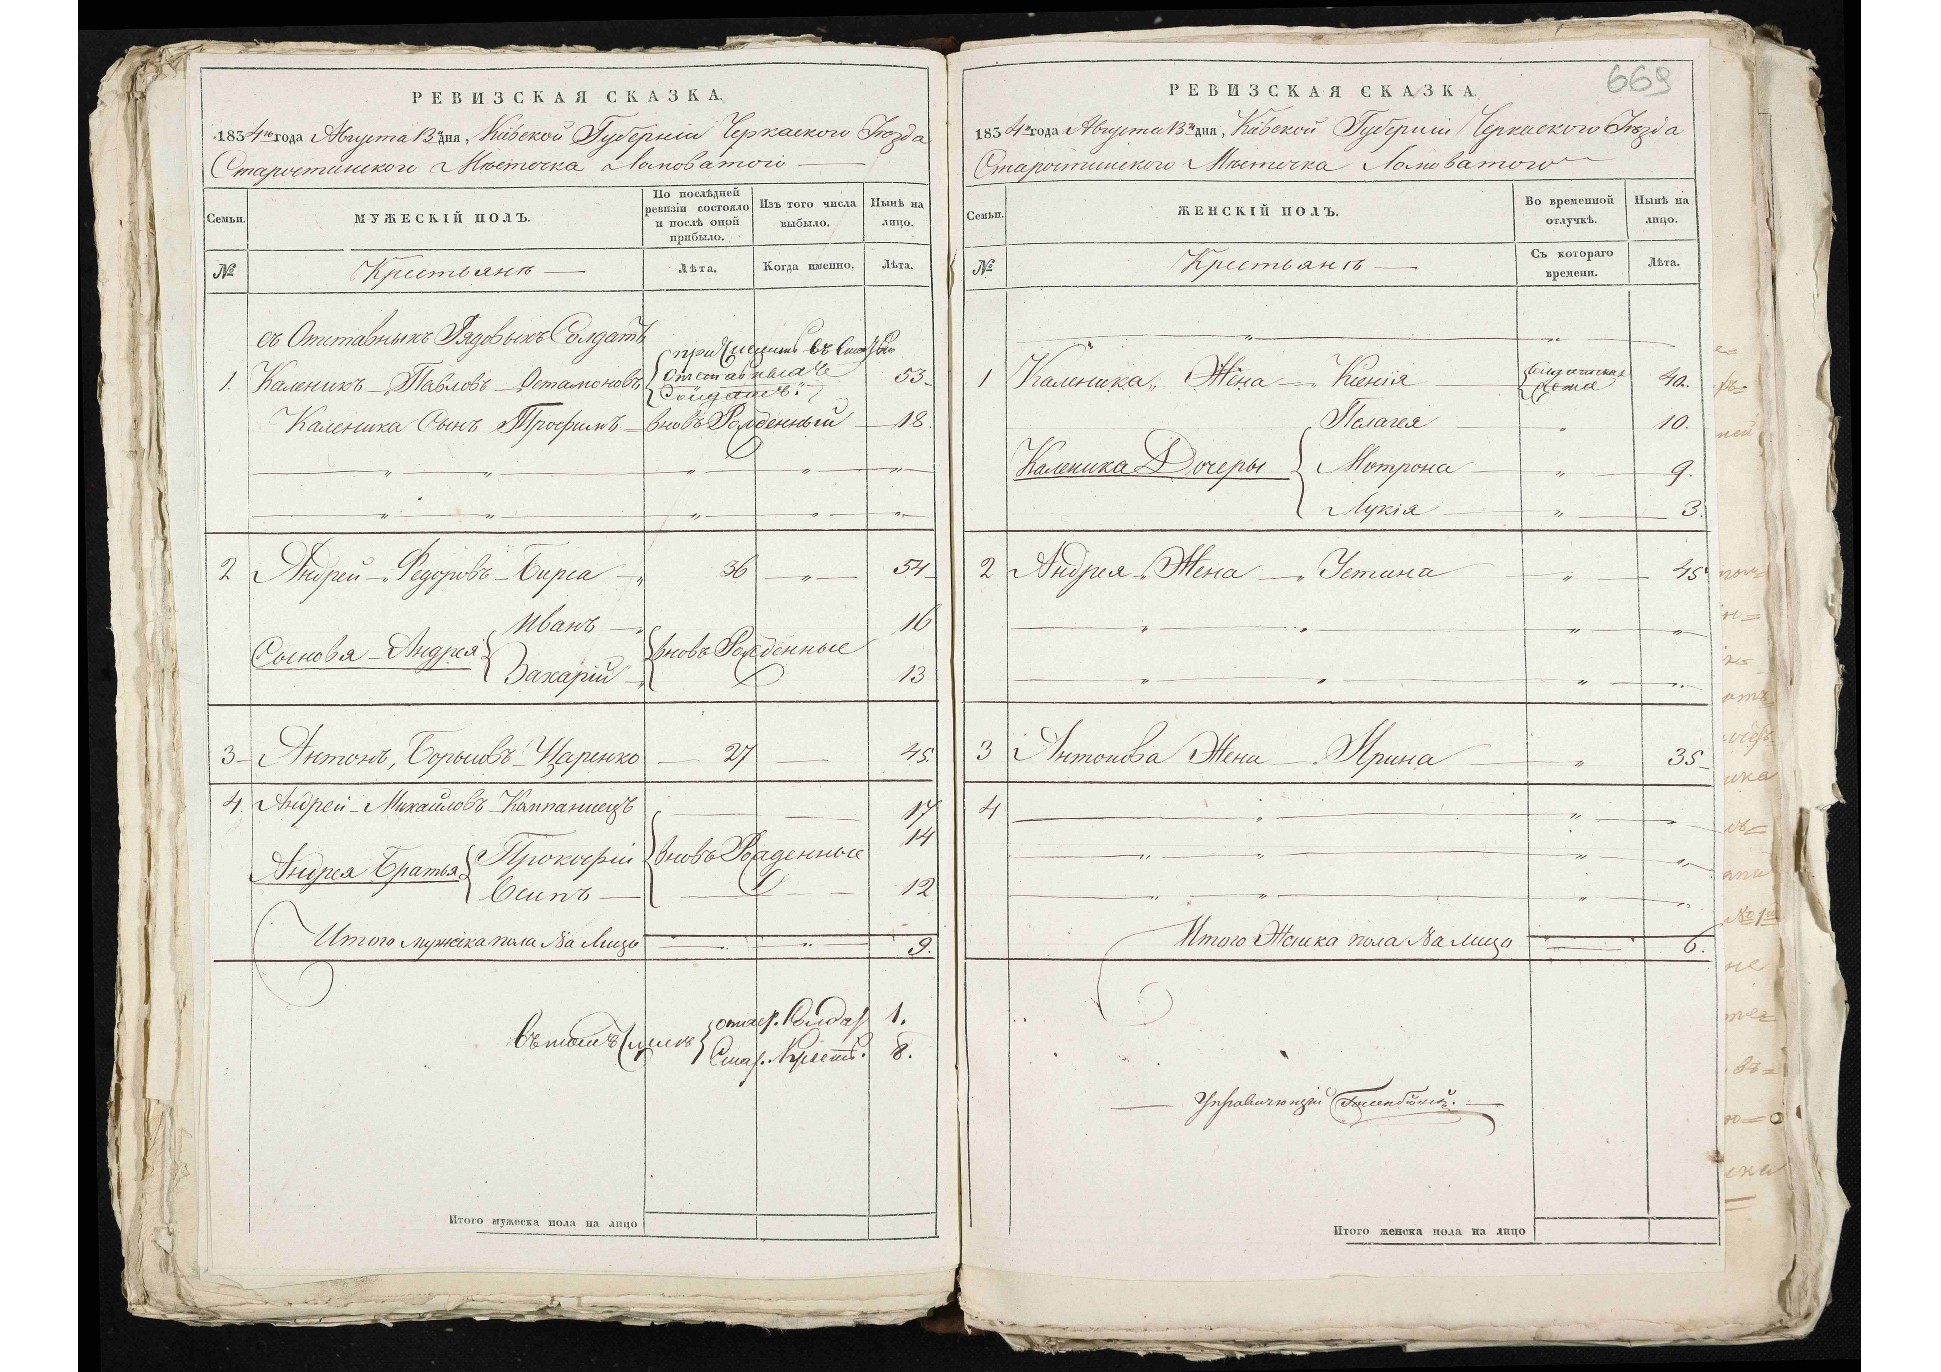 РЕВИЗСКАЯ СКАЗКА.
1834го года Августа 13 дня, Кіевской Губерніи Черкаского Уезда
Старостинского Мѣстечка Ломоватого
Семьи.
МУЖЕСКІЙ ПОЛЪ.
По послѣдней ревизіи состояло и послѣ оной прибыло.
Изъ того числа выбыло.
Нынѣ на лицо.
№
Крестьянъ
Лѣта.
Когда именно.
Лѣта.
съ Отставныхъ Рядовыхъ Солдатъ
1. Каленикъ Павловъ Остамоновъ отставныхъ 53
Каленика Сынъ Трофимъ вновь Рожденный 18.
2 Андрей Федоровъ Бирса 36 " 54
Иванъ 16
Сыновья Андрея вновь Рожденные
Захарій 13
3 Антонъ, Борысовъ Царенко 27 45
4. Андрей Михайловъ Каппаниецъ 17
Прокофій 14
Андрея Братья вновь Рожденные
Осипъ 12
Итого мужеска пола На Лицо " 9.
отст. Солдат 1.
въ томъ числѣ
Стар. Крест. 8.
Итого мужеска пола на лицо
669
РЕВИЗСКАЯ СКАЗКА.
1834го года Августа 13 дня, Кіевской Губерніи Черкаского Уезда
Старостинского Мѣстечка Ломоватого
Семьи.
ЖЕНСКІЙ ПОЛЪ.
Во временной отлучкѣ.
Нынѣ на лицо.
№
Крестьянъ
Съ котораго времени.
Лѣта.
1 Каленика Жена Ксенія 40.
Пелагея " 10.
Каленика Дочеры Мотрона " 9.
Лукія " 3.
2 Андрея Жена Устина " 45
3 Антонова Жена Ярина " 35
4
Итого Женска пола На Лицо 6.
Управляющій
Итого женска пола на лицо